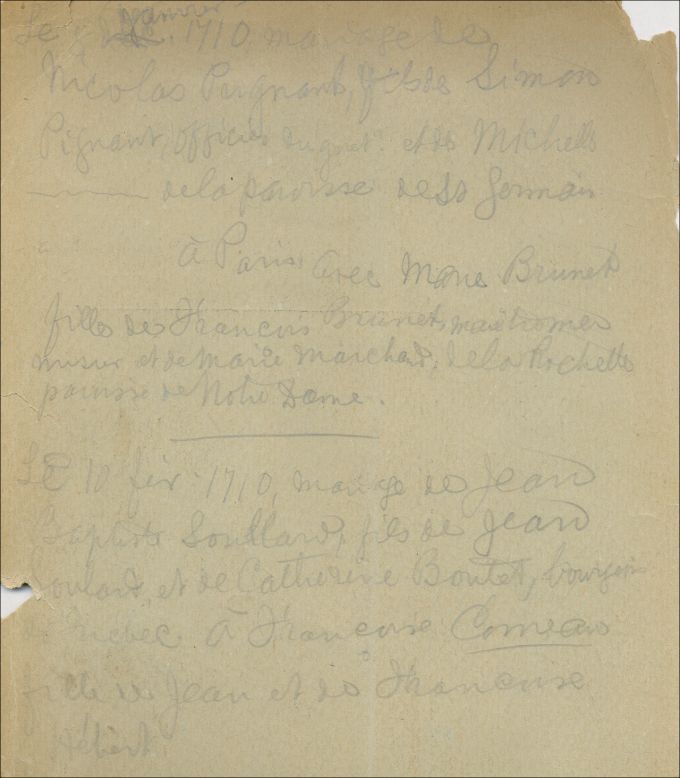 janvier
Le 1710 mariage de
Nicolas Pugnant, fils de Simon
Pignant, officier et de Michelle
de la paroisse de St Germain
à Paris. avec Marie Brunet
fille de Francois Brunet, maitre
mesur et de Marie Marchad, de la Rochelle
paroisse de Notre Dame.
Le 10 fév. 1710, mariage de Jean
Baptiste Soullard, fils de Jean
Soulard, et de Catherine Boutet, bourgeois
de Québec. à Francoise Comeau
fille de Jean et de Francoise
Hébert.